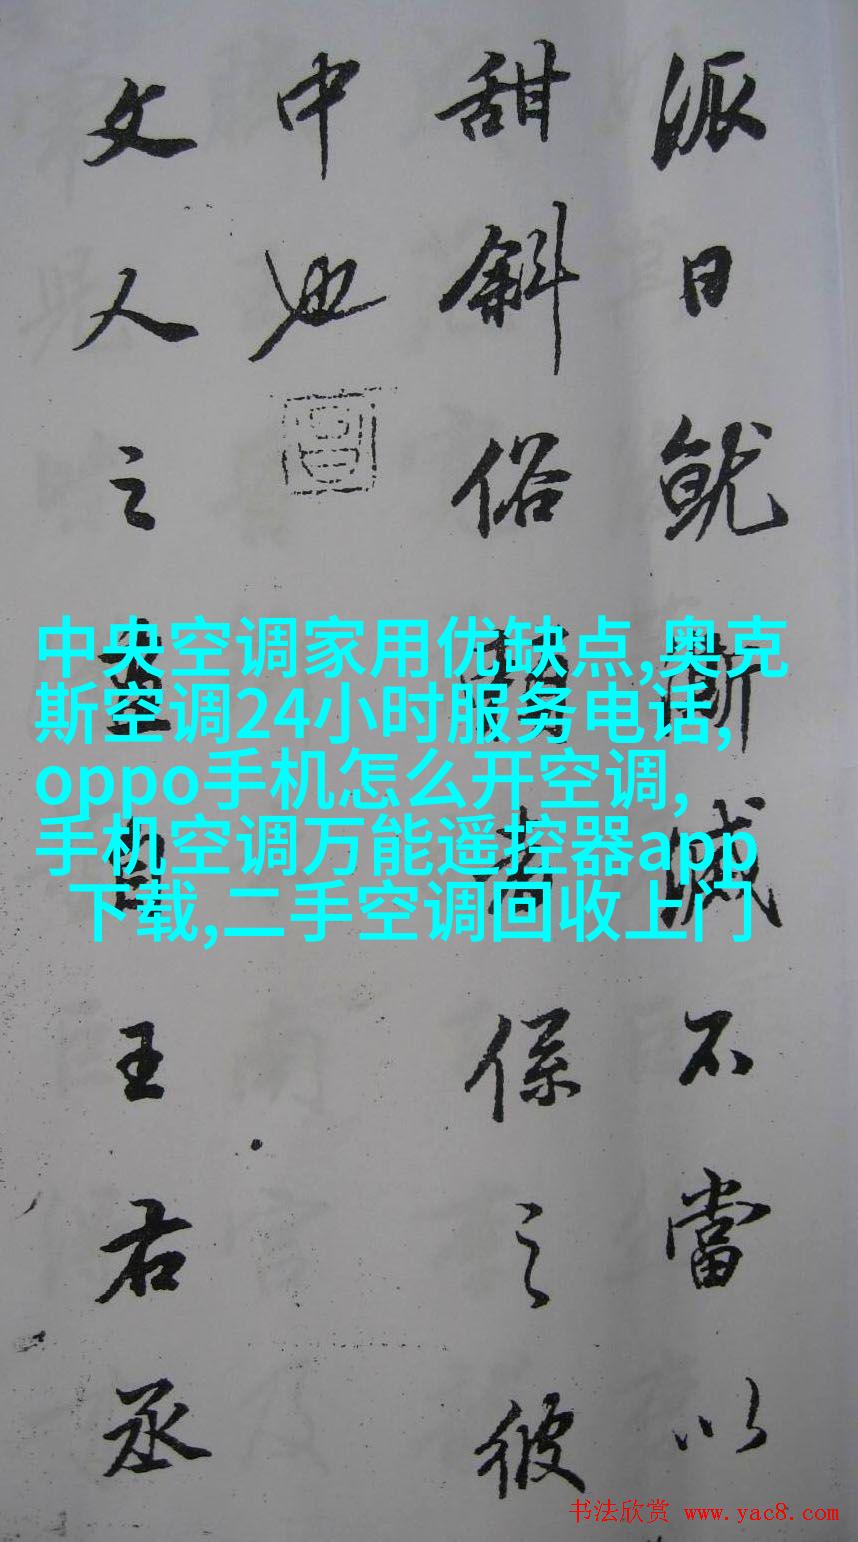 派日就不當以
甜斜俗者係之彼
中也
文人之畫自王右丞
中央空调家用优缺点,奥克
斯空调24小时服务电话,
oppo手机怎么开空调,
手机空调万能遥控器app
下载,二手空调回收上门
书法欣赏 www.yac8.com